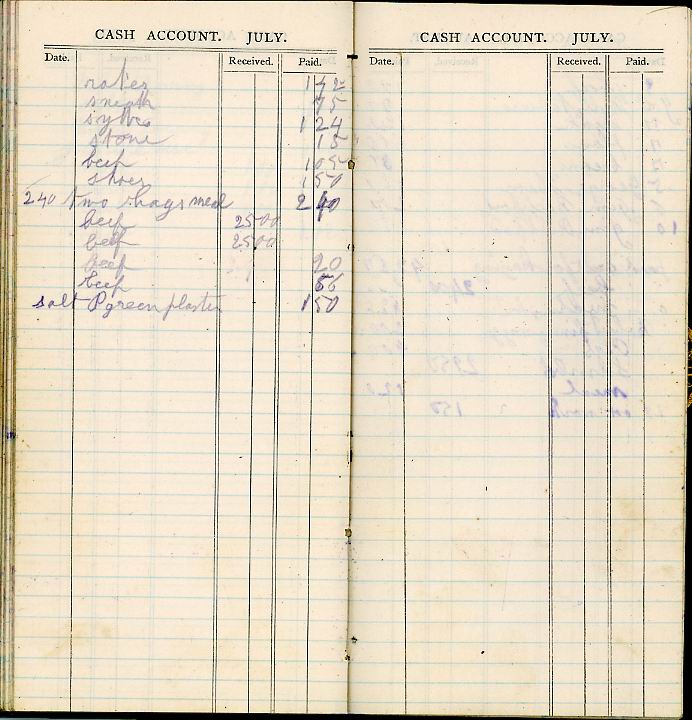 CASH ACCOUNT. JULY.
Date. Received. Paid.
rakes 1 42
sneath 75
sythe 1 24
stone 15
beef 1 05
shoes 1 50
240 two bags meal 2 40
beef 25 00
beef 25 00
beef 20
beef 56
salt P green plaster 1 50
CASH ACCOUNT. JULY.
Date. Received. Paid.